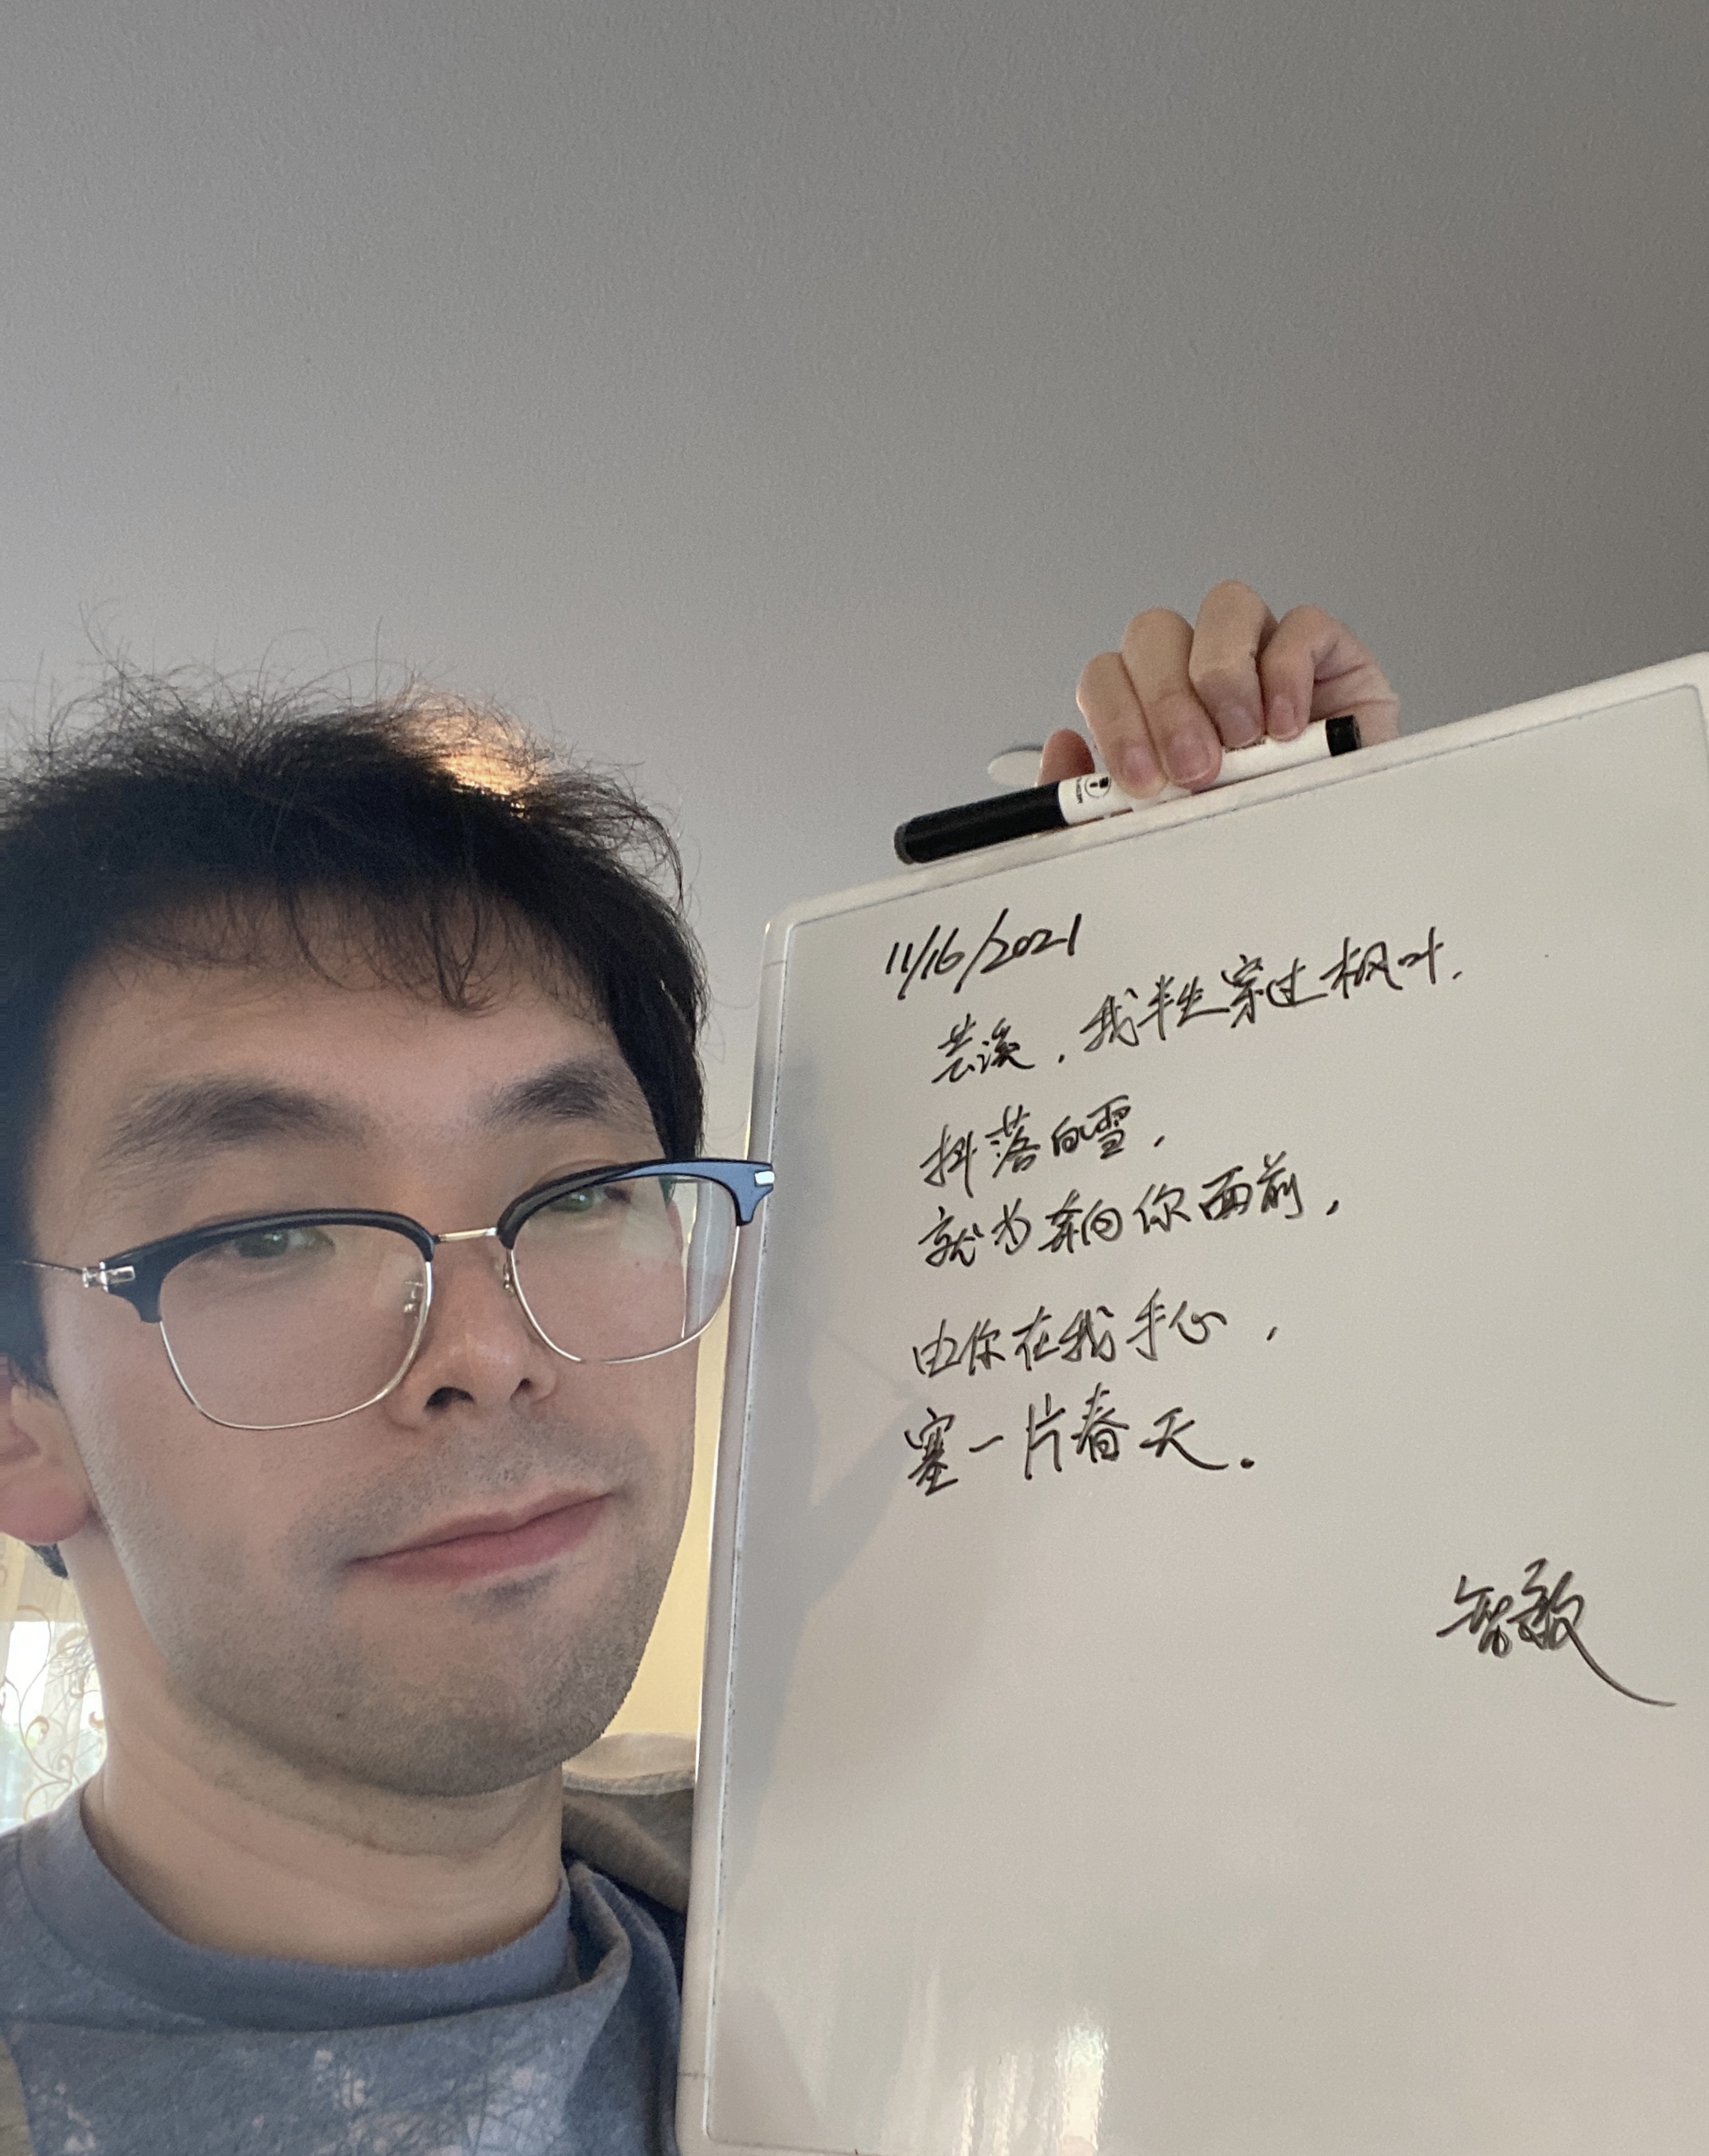 11/16/2021
芸溪，我半生穿过枫叶，
抖落白雪，
就为奔向你面前，
由你在我手心，
塞一片春天。
智敏